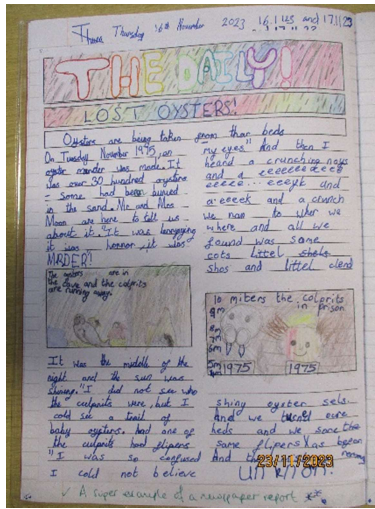 Thursday 16th November 2023 16.11.23 and 17.11.23
THE DAILY!
LOST OYSTERS!
Oysters are being taken from thar beds
On Tuesday November 1975, an
oyster murder was made. It
was over 30 hundred oysters
- Some had been buried
in the sand. Mr and Mrs
Moon are here to tell us
about it. It was
it was horror, it was
MRDER!
The oysters are in
the cave and the colprits
are running away.
It was the middle of the
night and the sun was
shining. "I did not see who
the culprits were, but I
cold see a trail of
baby oysters. And one of
the culprits had flipers
"I was so confused
I cold not believe
my eyes" And then I
heard a crunching noys
and a
and
a and a crunch
we ran to wher we
where and all we
found was some
cots littel
shos and littel
10 miters the colprits
in prison
9m
8m
7m
6m
5m
1975
1975
shiny oyster sels.
And we
beds and we
same flipers
And
23/11/2023
✓ A super example of a newspaper report